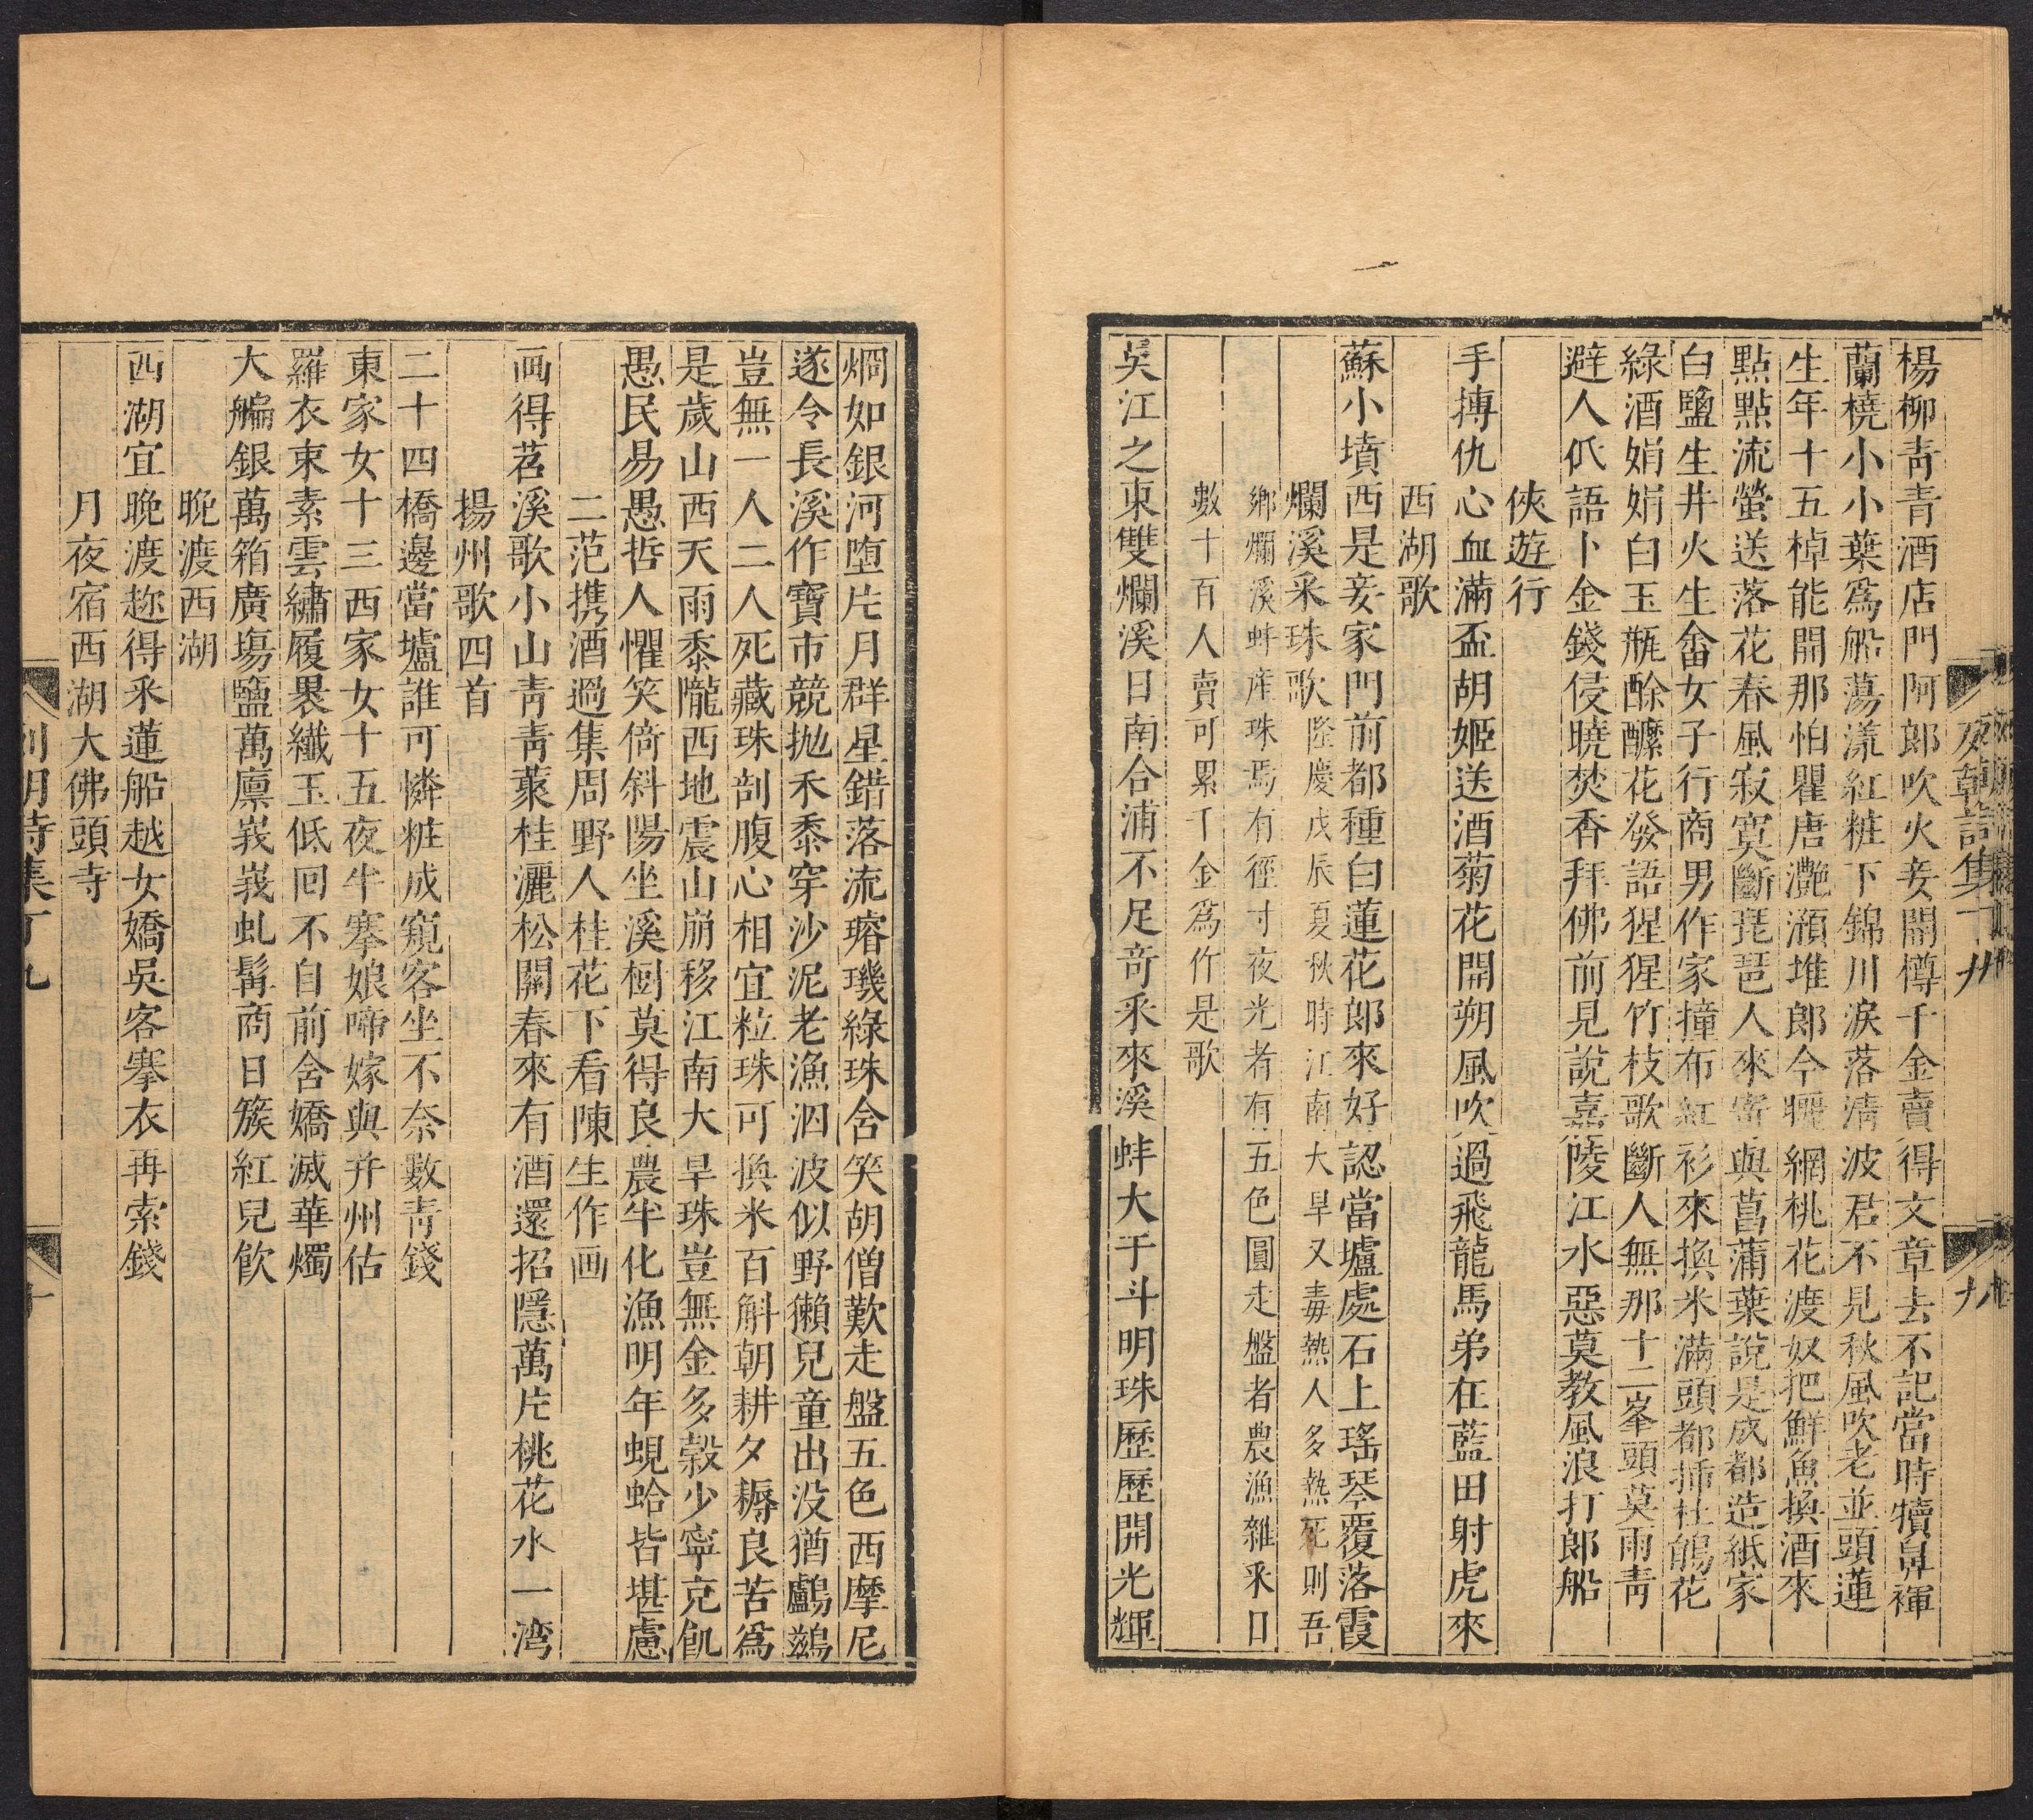 楊柳青青酒店門阿郎吹火妾開樽千金賣得文章去不記當時犢鼻褌
蘭橈小小葉爲船蕩漾紅粧下錦川淚落清波君不見秋風吹老並頭蓮
生年十五棹能開那怕瞿唐灧澦堆郎今曬網桃花渡奴把鮮魚換酒來
點點流螢送落花春風寂寞斷琵琶人來寄與菖蒲葉說是成都造紙家
白鹽生井火生畬女子行商男作家撞布紅衫來換米滿頭都揷杜鵑花
綠酒娟娟白玉瓶酴醾花發語猩猩竹枝歌斷人無那十二峯頭莫雨靑
避人低語卜金錢侵曉焚香拜佛前見說嘉陵江水惡莫教風浪打郎船
俠遊行
手搏仇心血滿盃胡姬送酒菊花開朔風吹過飛龍馬弟在藍田射虎來
西湖歌
蘇小墳西是妾家門前都種白蓮花郎來好認當壚處石上瑤琴覆落霞
爛溪采珠歌隆慶戊辰夏秋時江南大旱又毒熱人多熱死則吾
鄉爛溪蚌産珠焉有徑寸夜光者有五色圓走盤者農漁雜采日
數十百人賣可累千金爲作是歌
吳江之東雙爛溪日南合浦不足奇釆來溪蚌大于斗明珠歷歷開光輝
烱如銀河堕片月群星錯落流璿璣綠珠含笑胡僧歎走盤五色西摩尼
遂令長溪作寶市競抛禾黍穿沙泥老漁泅波似野獺兒童出没猶鸕鷀
豈無一人二人死藏珠剖腹心相宜粒珠可換米百斛朝耕夕耨良苦爲
是歲山西天雨黍隴西地震山崩移江南大旱珠豈無金多榖少寧克飢
愚民易愚哲人懼笑倚斜陽坐溪樹莫得良農半化漁明年蜆蛤皆堪慮
二范携酒過集周野人桂花下看陳生作画
画得苕溪歌小山靑靑藂桂灑松關春來有酒還招隱萬片桃花水一湾
揚州歌四首
二十四橋邊當壚誰可憐粧成窺客坐不奈數青錢
東家女十三西家女十五夜半搴娘啼嫁與并州估
羅衣束素雲繡履褭纖玉低回不自前含嬌滅華燭
大艑銀萬箱廣塲鹽萬廪峩峩虬髯商日簇紅兒飮
晚渡西湖
西湖宜晚渡趂得釆蓮船越女嬌吳客搴衣再索錢
月夜宿西湖大佛頭寺